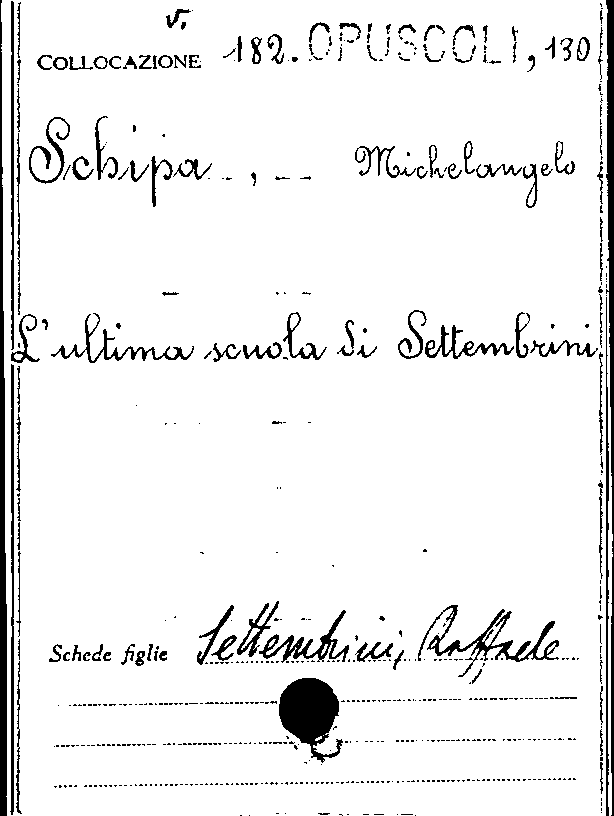 v.
COLLOCAZIONE 182. OPUSCOLI, 130
Schipa, Michelangelo
L'ultima scuola di Settembrini
Schede figlie Settembrini, Raffaele